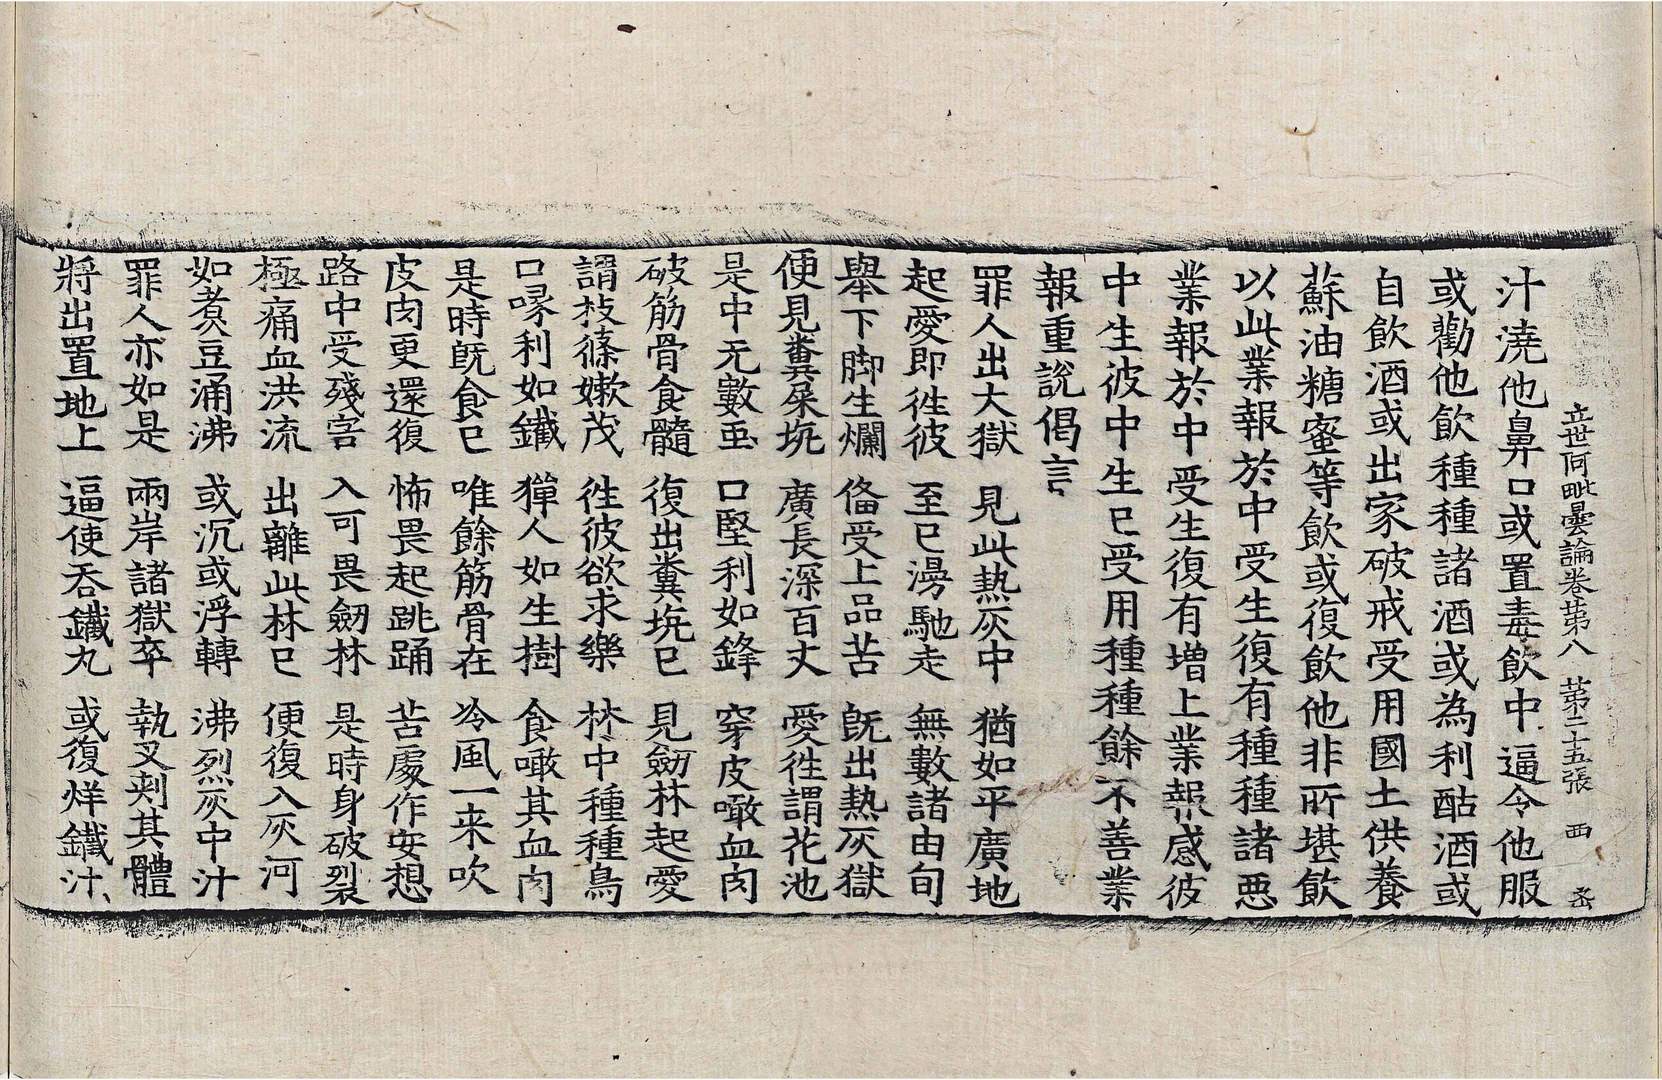 立世阿毗曇論卷第八 第二十五張 西
汁澆他鼻口或置毒飲中逼令他服
或勸他飲種種諸酒或為利酤酒或
自飲酒或出家破戒受用國土供養
蘇油糖蜜等飲或復飲他非所堪飲
以此業報於中受生復有種種諸惡
業報於中受生復有增上業報感彼
中生彼中生已受用種種餘不善業
報重說偈言
罪人出大獄 見此熱灰中 猶如平廣地
起愛即徃彼 至已漫馳走 無數諸由旬
舉下脚生爛 俻受上品苦 旣出熱灰獄
便見糞屎坑 廣長深百丈 愛徃謂花池
是中无數䖝 口堅利如鋒 穿皮噉血肉
破筋骨食髓 復出糞坑已 見劒林起愛
謂枝篠嫰茂 徃彼欲求樂 林中種種鳥
口喙利如鐵 獋人如生樹 食噉其血肉
是時旣食已 唯餘筋骨在 冷風一来吹
皮肉更還復 怖畏起跳踊 苦處作安想
路中受殘害 入可畏劒林 是時身破裂
極痛血洪流 出離此林已 便復入灰河
如煑豆涌沸 或沉或浮轉 沸烈灰中汁
罪人亦如是 兩岸諸獄卒 執叉刾其體
將出置地上 逼使吞鐵丸 或復烊鐵汁